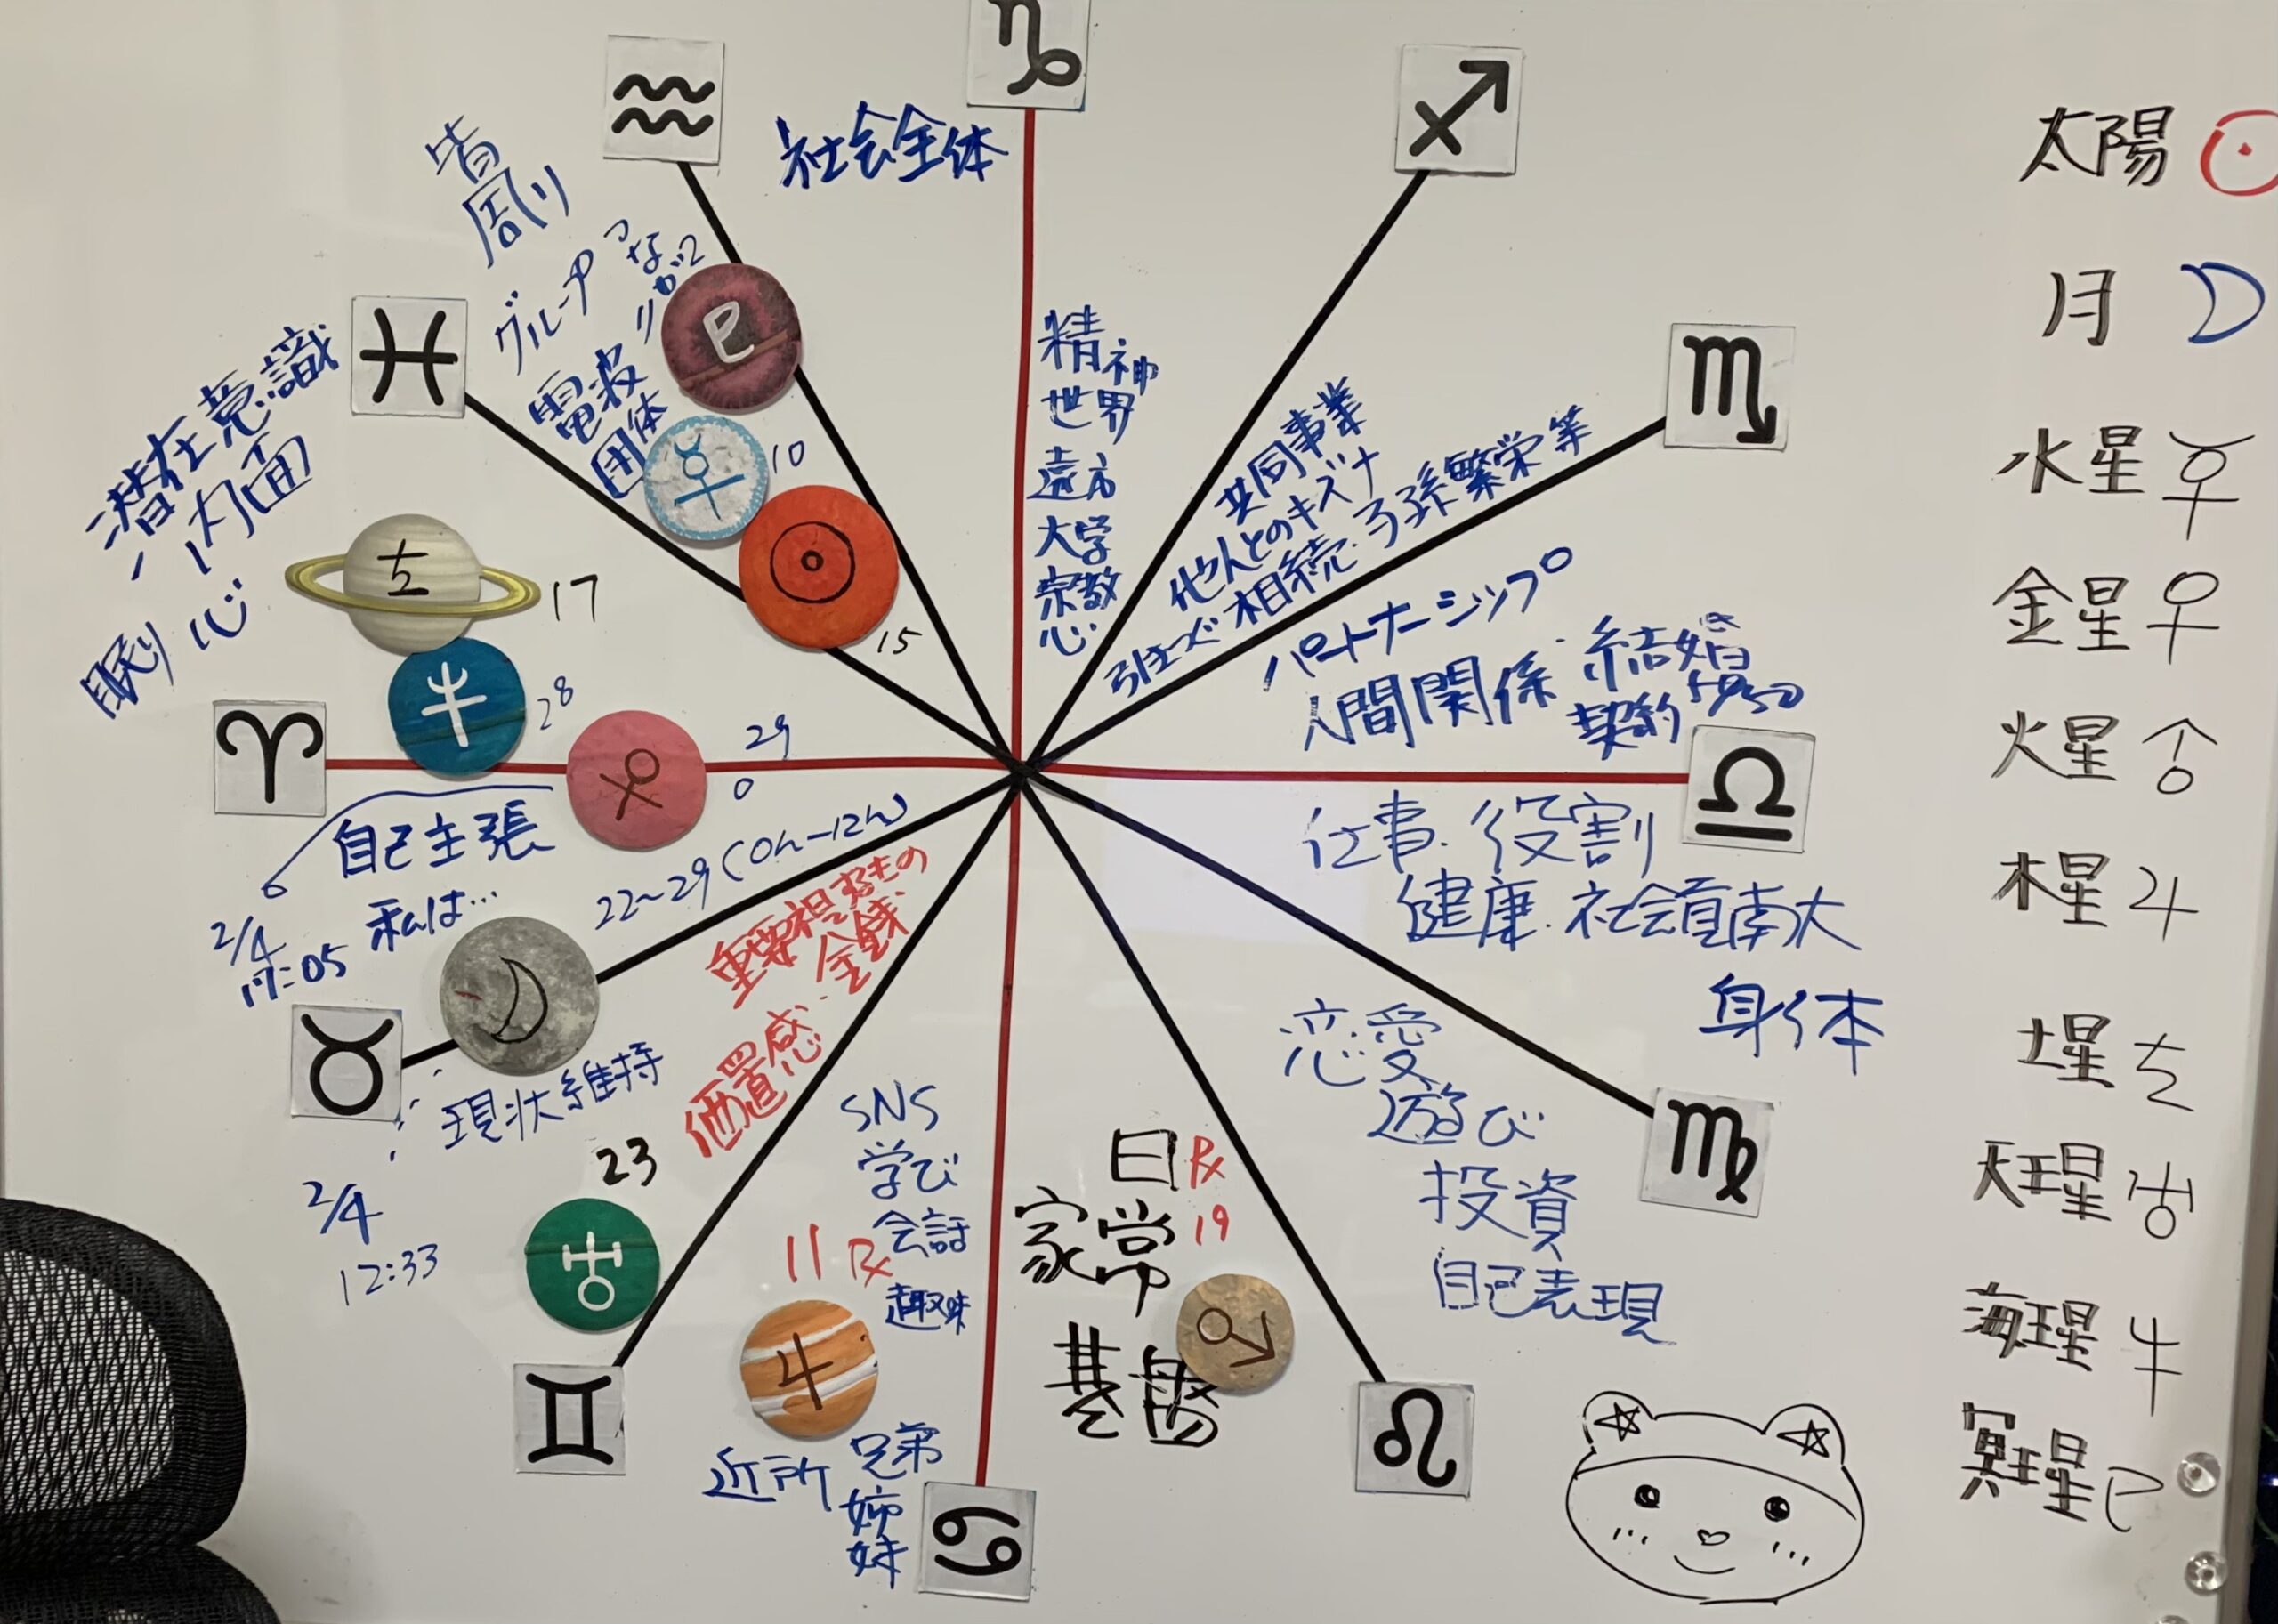 社会全体
皆
周り
グループ
つな
電波
団体
10
15
潜在意識
内面
眠り 心
17
28
29
0
自己主張
私は…
2/4
17:05
22~29(0h-12h)
現状維持
2/4
12:33
23
重要視するもの
金銭
価置感
SNS
学び
会話
趣味
11 Rx
近所
兄弟
姉
妹
日
常
家
基盤
Rx
19
恋愛
遊び
投資
自己表現
仕事・役割
健康・社会貢献
身体
パートナーシップ
人間関係・結婚
契約
共同事業
他人とのキズナ
引きつぐ 相続・子孫繁栄等
精神
世界
遠方
大学
宗教
心
太陽 ☉
月 ☽
水星 ☿
金星 ♀
火星 ♂
木星 ♃
土星 ♄
天王星 ♅
海王星 ♆
冥王星 ♇